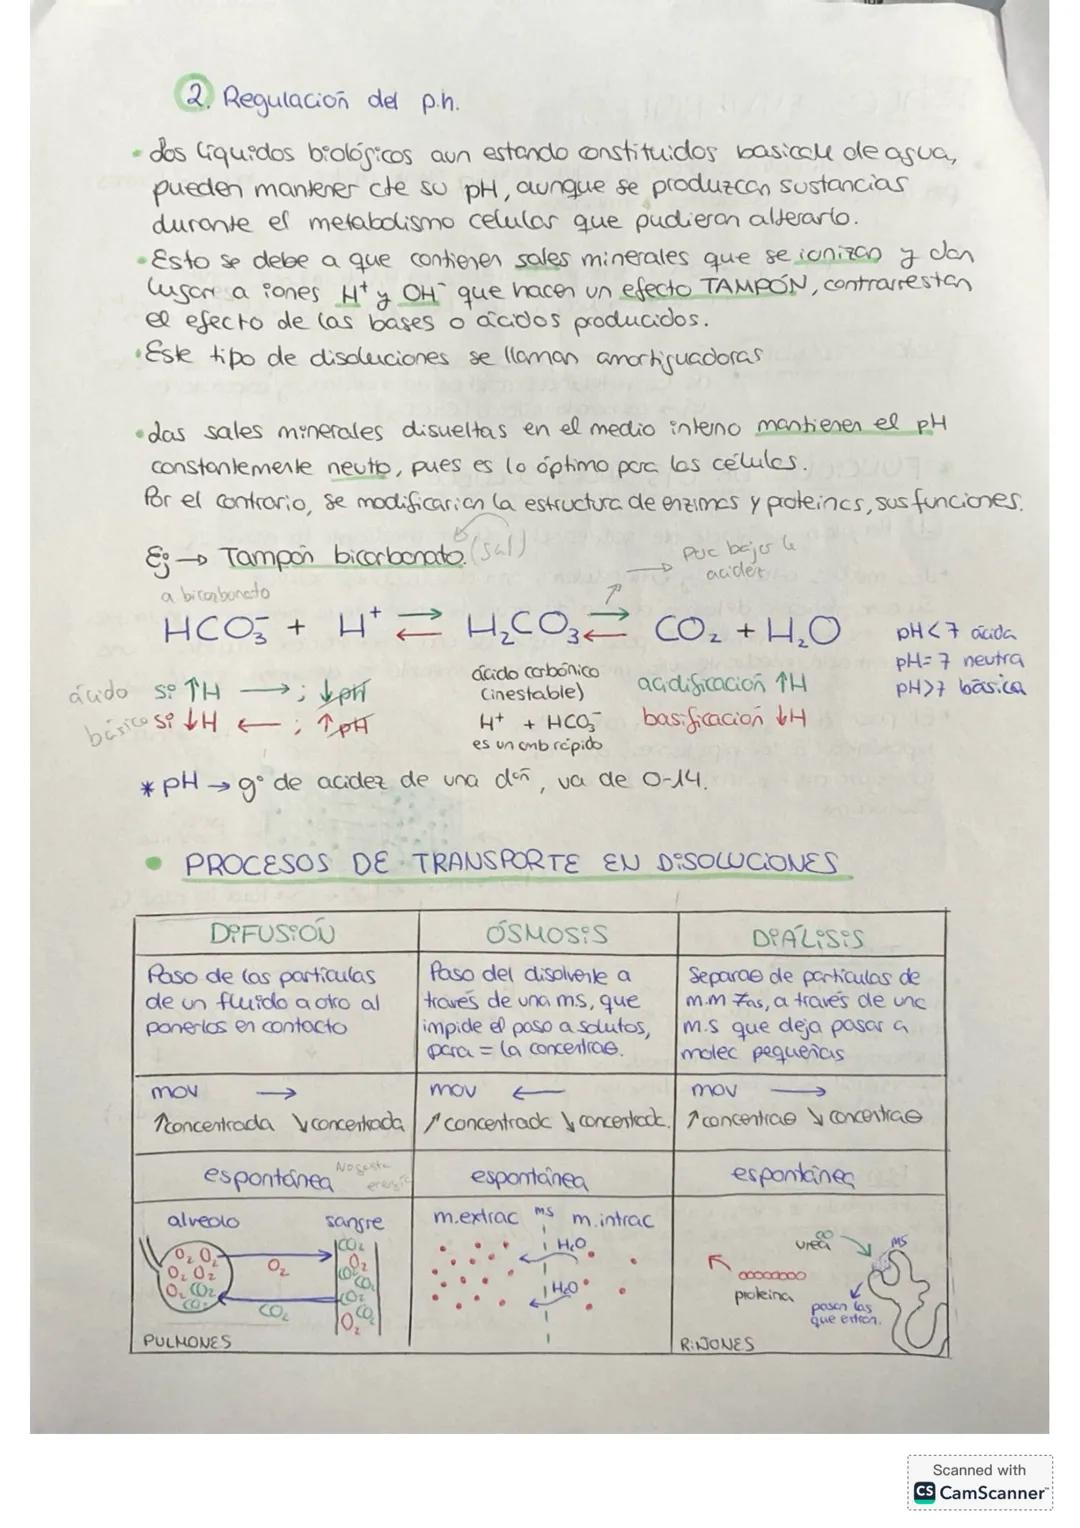 2. Regulación del p.h.
• Los líquidos biológicos aun estando constituidos basicam de agua,
pueden mantener cte su pH, aunque se produzcan sustancias
durante el metabolismo celular que pudieran alterarlo.
• Esto se debe a que contienen sales minerales que se ionizan y dan
lugar a iones H⁺ y OH⁻ que hacen un efecto TAMPÓN, contrarrestan
el efecto de las bases o ácidos producidos.
• Este tipo de disoluciones se llaman amortiguadoras
• Las sales minerales disueltas en el medio interno mantienen el pH
constantemente neutro, pues es lo óptimo para las células.
Por el contrario, se modificarian la estructura de enzimas y proteinas, sus funciones.
Ej → Tampón bicarbonato. (sal)
→ para bajar la
acidez
a bicarbonato
HCO₃⁻ + H⁺ ⇄ H₂CO₃ ⇄ CO₂ + H₂O
pH<7 ácida
pH=7 neutra
pH>7 básica
ácido si ↑H → ; ↓pH
básico si ↓H ← ; ↑pH
ácido carbónico
(inestable)
H⁺ + HCO₃⁻
es un cmb rápido
acidificación ↑H
basificación ↓H
* pH → gº de acidez de una dón, va de 0-14.
• PROCESOS DE TRANSPORTE EN DISOLUCIONES
DIFUSIÓN ÓSMOSIS DIÁLISIS
Paso de las partículas
de un fluido a otro al
ponerlos en contacto
Paso del disolvente a
través de una ms, que
impide el paso a solutos,
para = la concentra⊖.
Separa⊖ de partículas de
m.m ≠as, a través de una
m.s que deja pasar a
molec pequeñas
mov → mov ← mov →
↑concentrada ↓concentrada ↑concentrada ↓concentrada. ↑concentra⊖ ↓concentra⊖
espontánea No gasta energía espontánea espontánea
alveolo sangre
O₂ O₂
O₂ O₂
O₂ CO₂
CO₂
O₂
CO₂
CO₂
O₂
CO₂
CO₂
CO₂
CO₂
O₂
PULMONES
m.extrac ms m.intrac
H₂O
H₂O
urea MS
proteina
pasan las
que entren.
RIÑONES
Scanned with
CS CamScanner